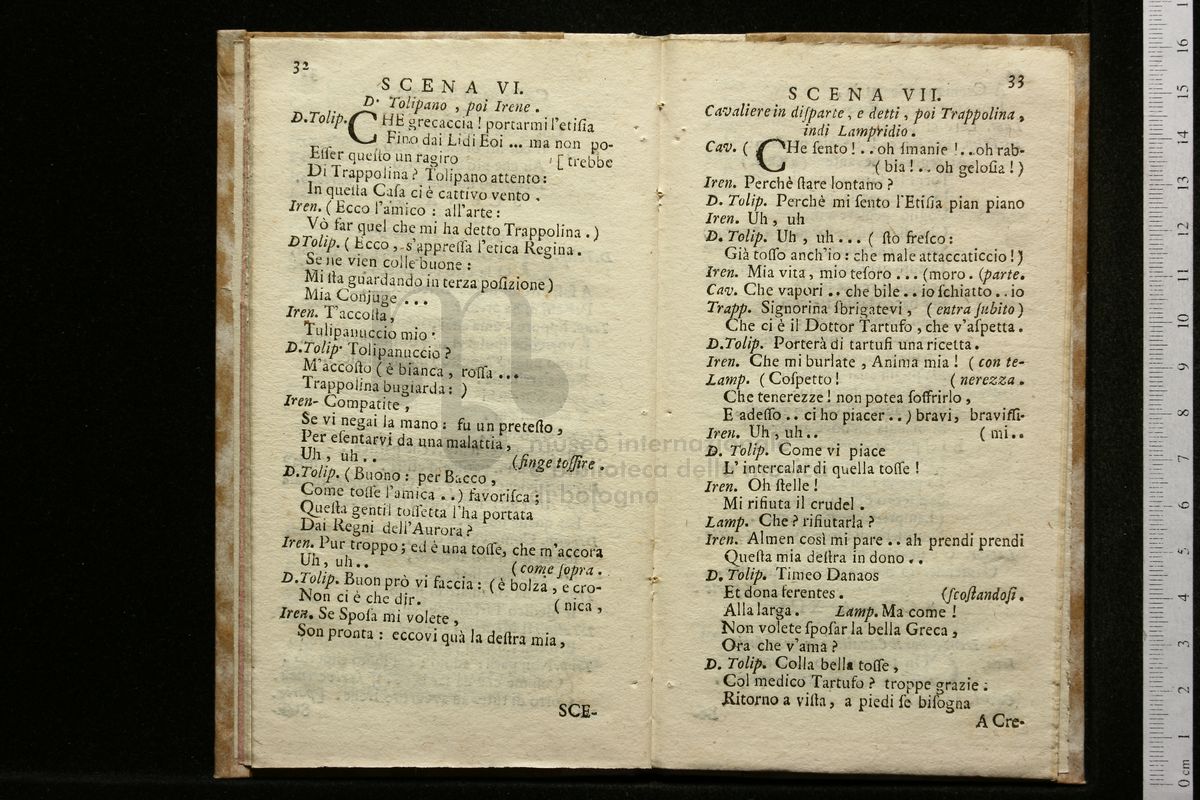 32
SCENA VI.
D. Tolipano, poi Irene.
D.Tolip. CHE grecaccia! portarmi l'etiſia
Fino dai Lidi Eoi ... ma non po-
Eſſer queſto un ragiro [trebbe
Di Trappolina? Tolipano attento:
In queſta Caſa ci è cattivo vento.
Iren. (Ecco l'amico: all'arte:
Vò far quel che mi ha detto Trappolina.)
D Tolip. (Ecco, s'appreſſa l'etica Regina.
Se ne vien colle buone:
Mi ſta guardando in terza poſizione)
Mia Conjuge ...
Iren. T'accoſta,
Tulipanuccio mio.
D.Tolip. Tolipanuccio?
M'accoſto (è bianca, roſſa ...
Trappolina bugiarda:)
Iren- Compatite,
Se vi negai la mano: fu un preteſto,
Per eſentarvi da una malattia,
Uh, uh.. (finge toſſire.
D.Tolip. (Buono: per Bacco,
Come toſſe l'amica ..) favoriſca;
Queſta gentil toſſetta l'ha portata
Dai Regni dell'Aurora?
Iren. Pur troppo; ed è una toſſe, che m'accora
Uh, uh.. (come ſopra.
D.Tolip. Buon prò vi faccia: (è bolza, e cro-
Non ci è che dir. (nica,
Iren. Se Spoſa mi volete,
Son pronta: eccovi quà la deſtra mia,
SCE-
33
SCENA VII.
Cavaliere in diſparte, e detti, poi Trappolina,
indi Lampridio.
Cav. (CHe ſento!..oh ſmanie!..oh rab-
(bia!.. oh geloſia!)
Iren. Perchè ſtare lontano?
D. Tolip. Perchè mi ſento l'Etiſia pian piano
Iren. Uh, uh
D. Tolip. Uh, uh... (ſtò freſco:
Già toſſo anch'io: che male attaccaticcio!)
Iren. Mia vita, mio teſoro ... (moro. (parte.
Cav. Che vapori .. che bile .. io ſchiatto .. io
Trapp. Signorina ſbrigatevi, (entra ſubito)
Che ci è il Dottor Tartufo, che v'aſpetta.
D.Tolip. Porterà di tartufi una ricetta.
Iren. Che mi burlate, Anima mia! (con te-
Lamp. (Coſpetto! (nerezza.
Che tenerezze! non potea ſoffrirlo,
E adeſſo .. ci ho piacer ..) bravi, braviſſi-
Iren. Uh, uh.. (mi..
D. Tolip. Come vi piace
L' intercalar di quella toſſe!
Iren. Oh ſtelle!
Mi rifiuta il crudel.
Lamp. Che? rifiutarla?
Iren. Almen così mi pare .. ah prendi prendi
Queſta mia deſtra in dono ..
D. Tolip. Timeo Danaos
Et dona ferentes. (ſcoſtandoſi.
Alla larga. Lamp. Ma come!
Non volete ſpoſar la bella Greca,
Ora che v'ama?
D. Tolip. Colla bella toſſe,
Col medico Tartufo? troppe grazie:
Ritorno a viſta, a piedi ſe biſogna
A Cre-
museo internazionale
e biblioteca della
di bologna
0 cm 1 2 3 4 5 6 7 8 9 10 11 12 13 14 15 16 1